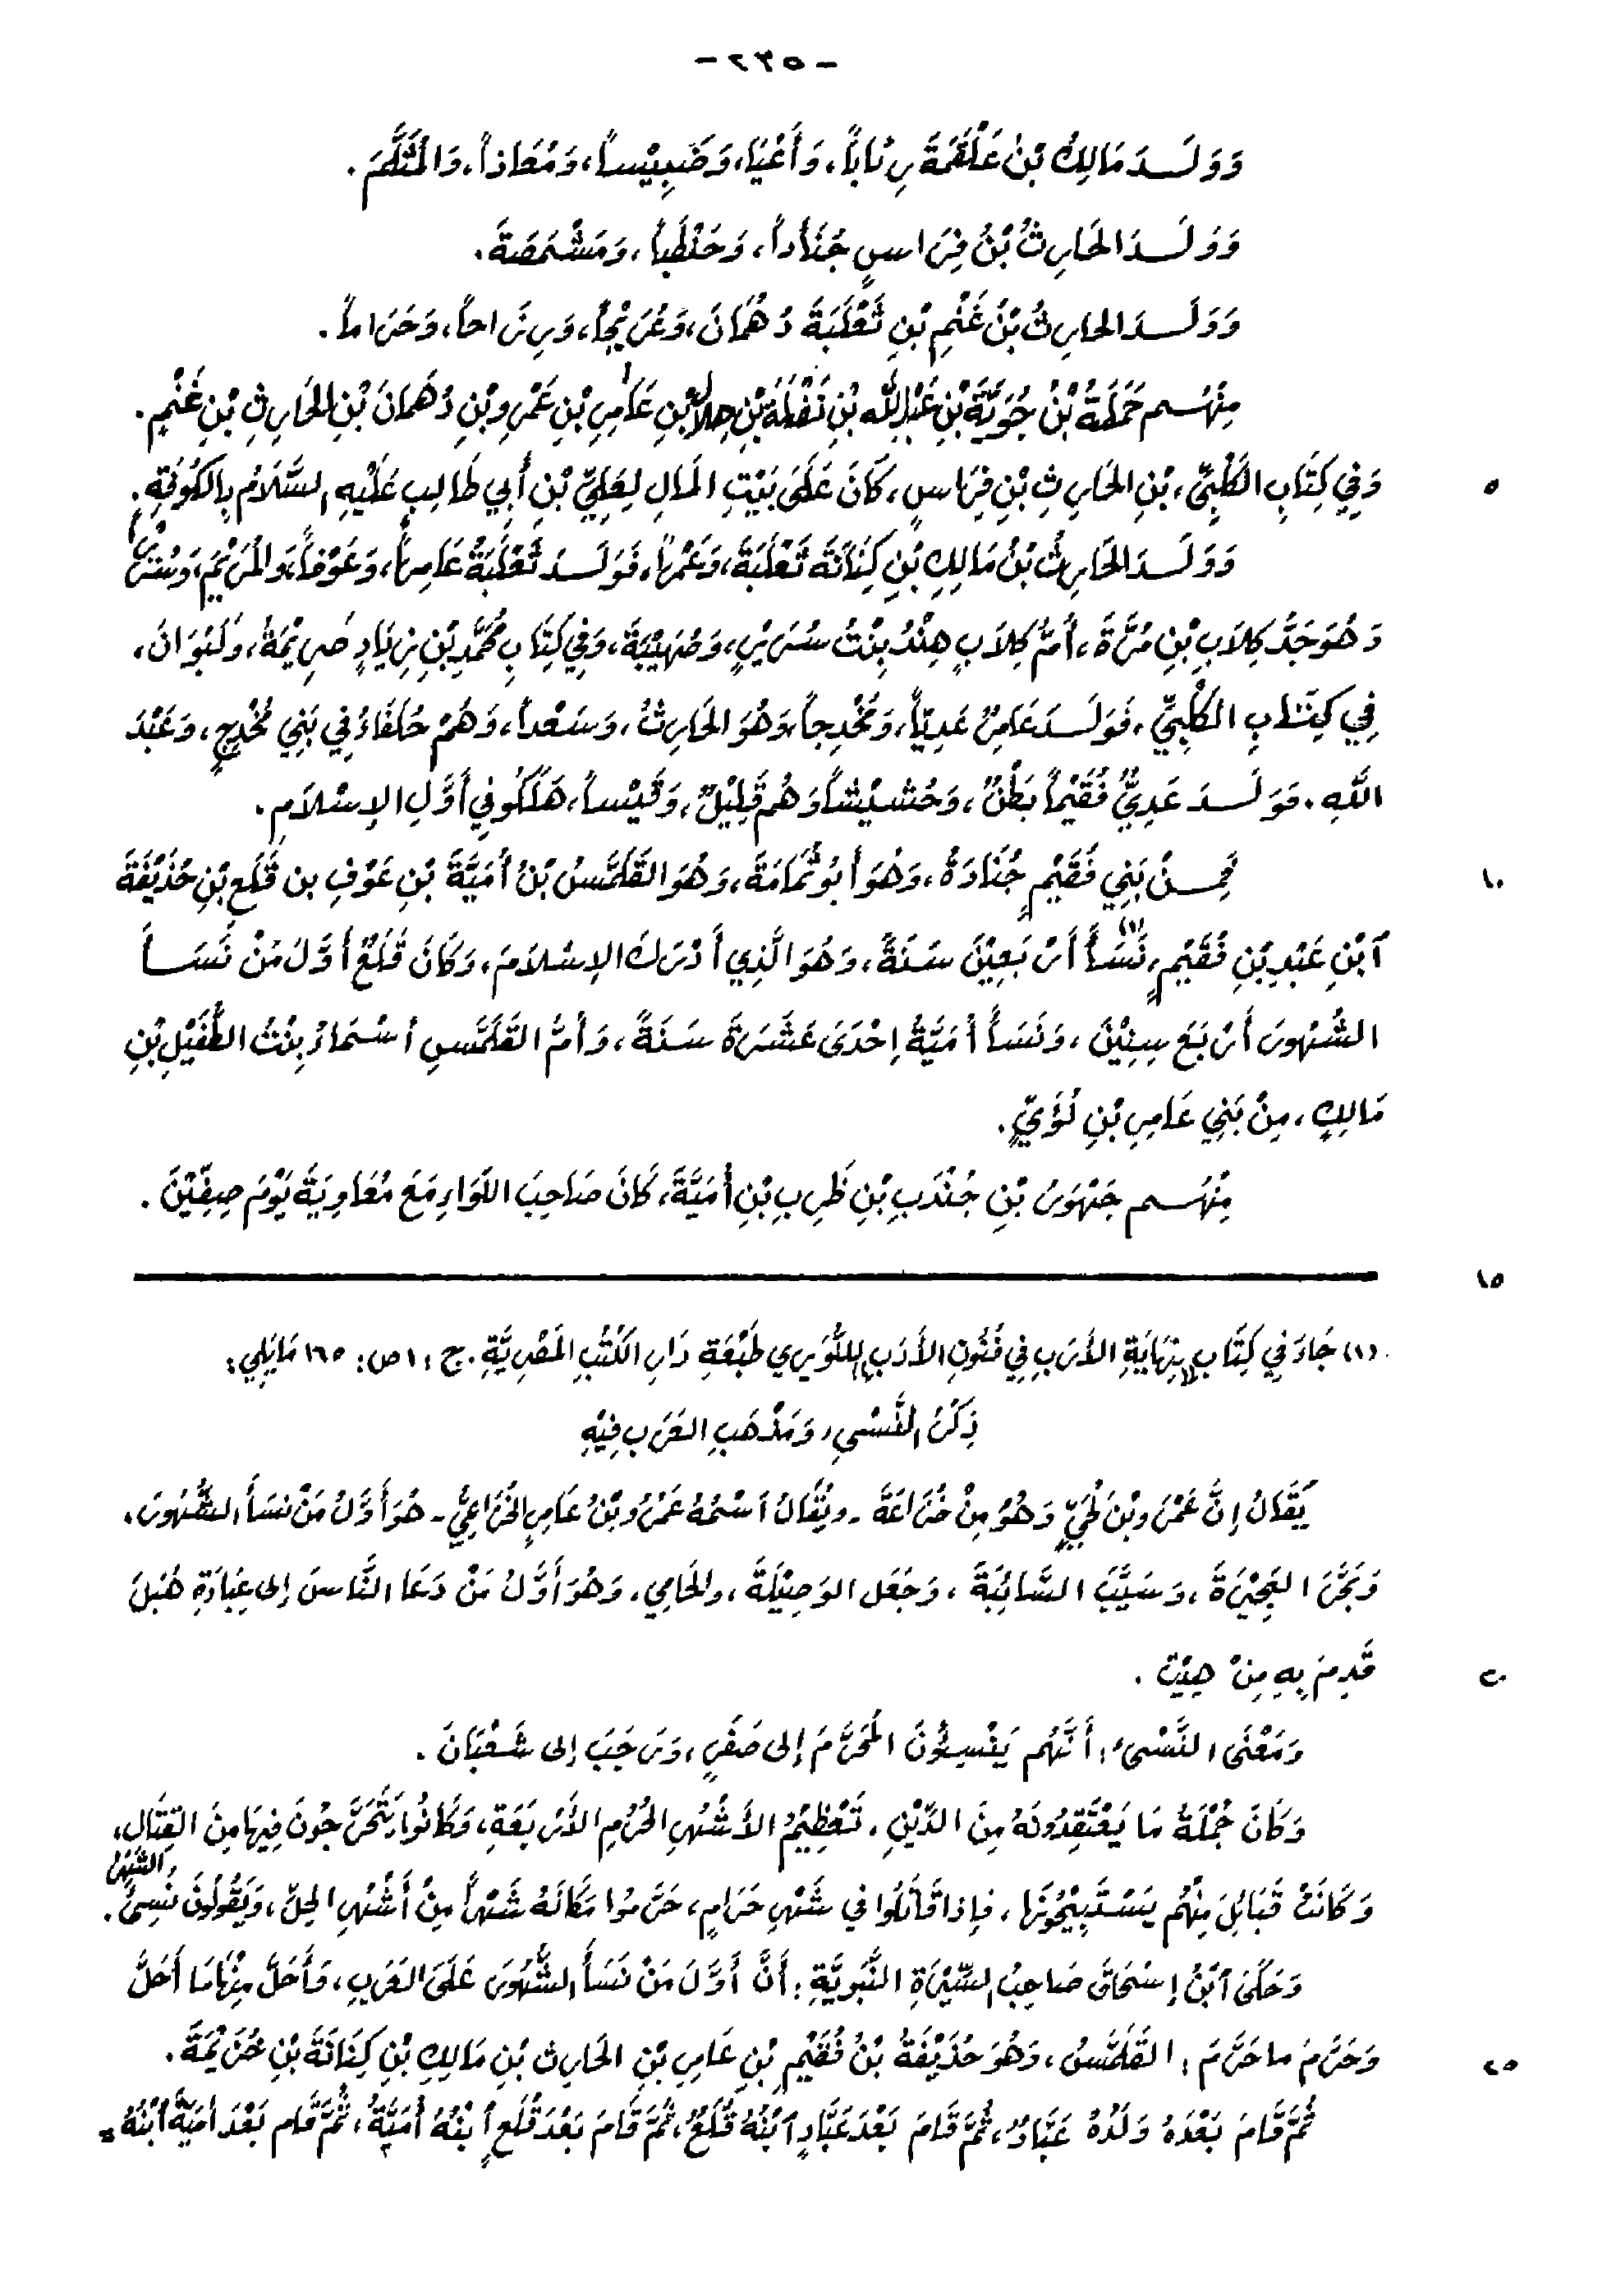 - ٥٣٢ -
وَوَلَدَ مَالِكُ بْنُ عَلْقَمَةَ رِئَاباً، وَأَعْيَا، وَضَبِيْساً، وَمُعَاذاً، وَالمُثَلَّمَ.
وَوَلَدَ الحَارِثُ بْنُ فِرَاسٍ جُنَأداً، وَحَنْظَباً، وَمَشْمَصَةَ.
وَوَلَدَ الحارِثُ بْنُ غَنْمِ بْنِ ثَعْلَبَةَ دُهْمَانَ، وَعُرَيْجاً، وَرِزَاحاً، وَحَرَاماً.
مِنْهُم حَمَلَةُ بْنُ جُوَيَّةَ بْنِ عَبْدِ اللَّه بْنِ نَضْلَةَ بْنِ هِلَالِ بْنِ عَامِرِ بْنِ عَمْرِو بْنِ دُهْمَانَ بْنِ الحَارِثِ بْنِ غَنْمٍ.
وَفِي كِتَابِ الكَلْبِيِّ، بْنِ الحَارِثِ بْنِ فِرَاسٍ، كَانَ عَلَى بَيْتِ المَالِ لِعَلِيِّ بْنِ أَبِي طَالِبٍ عَلَيْهِ السَّلَامُ بِالكُوفَةِ. ٥
وَوَلَدَ الحَارِثُ بْنُ مَالِكِ بْنِ كِنَانَةَ ثَعْلَبَةَ، وَعَمْراً، فَوَلَدَ ثَعْلَبَةُ عَامِراً، وَعَوْفاً، وَالمُرَيْمَ، وَسُرَيْراً
وَهُوَ جَدُّ كِلَابِ بْنِ مُرَّةَ، أُمُّ كِلَابٍ هِنْدُ بِنْتُ سُرَيْرٍ، وَصُهَيْبَةَ، وَفِي كِتَابِ مُحَمَّدِ بْنِ زِيَادٍ صَرِيْمَةُ، وَلَبَوَانَ،
فِي كِتَابِ الكَلْبِيِّ، فَوَلَدَ عَامِرٌ عَدِيّاً، وَمُخْدِجاً، وَهُوَ الحَارِثُ، وَسَعْداً، وَهُمْ حُلَفَاءُ فِي بَنِي مُخْدِجٍ، وَعَبْدَ
اللَّهِ. فَوَلَدَ عَدِيٌّ فُقَيْماً بَطْنٌ، وَحُشَيْشاً وَهُم قَلِيْلٌ، وَقَيْساً، هَلَكُو فِي أَوَّلِ الإِسْلَامِ.
فَمِنْ بَنِي فُقَيْمٍ جُنَادَةُ، وَهُوَ أَبُو ثُمَامَةَ، وَهُوَ القَلَمَّسُ بْنُ أُمَيَّةَ بْنِ عَوْفِ بن قَلَعِ بْنِ حُذَيْفَةَ ١٠
ٱبْنِ عَبْدِ بْنِ فُقَيْمٍ، نَسَأَ (١) أَرْبَعِيْنَ سَنَةً، وَهُوَ الَّذِي أَدْرَكَ الإِسْلَامَ، وَكَانَ قَلَعٌ أَوَّلَ مَنْ نَسَأَ
الشُّهُورَ أَرْبَعَ سِنِيْنَ، وَنَسَأَ أُمَيَّةُ إِحْدَى عَشَرَةَ سَنَةً، وَأُمُّ القَلَمَّسِ أَسْمَاءُ بِنْتُ الطُّفَيْلِ بْنِ
مَالِكٍ، مِنْ بَنِي عَامِرِ بْنِ لُؤَيٍّ.
مِنْهُم جَهْوَرُ بْنِ جُنْدَبِ بْنِ ظَرِبِ بْنِ أُمَيَّةَ، كَانَ صَاحِبَ اللِّوَاءِ مَعَ مُعَاوِيَةَ يَوْمَ صِفِّيْنَ.
١٥
(١) جَاءَ فِي كِتَابِ «نِهَايَةِ الأَرَبِ فِي فُنُونِ الأَدَبِ» لِلنُّوَيْرِي طَبْعَةِ دَارِ الكُتُبِ المَصْرِيَّةِ. ج: ١ ص: ١٦٥ مَايَلِي:
ذِكْرُ النَّسْيِ، وَمَذْهَبِ العَرَبِ فِيْهِ
يُقَالُ إِنَّ عَمْرَو بْنَ لُحَيٍّ وَهُوَ مِنْ خُزَاعَةَ - ويُقَالُ ٱسْمُهُ عَمْرُو بْنُ عَامِرٍ الخُزَاعِيُّ - هُوَ أَوَّلُ مَنْ نَسَأَ الشُّهُورَ،
وَبَحَّرَ البَحِيْرَةَ، وَسَيَّبَ السَّائِبَةَ، وَجَعَل الوَصِيْلَةَ، والحَامِي، وَهُوَ أَوَّلُ مَنْ دَعَا النَّاسَ إلى عِبَادَةِ هُبَلَ
قَدِمَ بِهِ مِنْ هِيْتَ. ٢٠
وَمَعْنَى النَّسْيءِ: أَنَّهُم يَنْسِئُونَ المُحَرَّمَ إلى صَفَرٍ، وَرَجَبَ إلى شَعْبَانَ.
وَكَانَ جُمْلَةُ مَا يَعْتَقِدُونَهُ مِنَ الدِّيْنِ، تَعْظِيْمُ الأَشْهُرِ الحُرُمِ الأَرْبَعَةِ، وَكَانُوا يَتَحَرَّجُونَ فِيهَا مِنَ القِتَالِ،
وَكَانَتْ قَبَائِلَ مِنْهُم يَسْتَبِيْحُونَهَا، فإِذا قَاتَلُوا في شَهْرٍ حَرَامٍ، حَرَّمُوا مَكَانَهُ شَهْراً مِنْ أَشْهُرِ الحِلِّ، وَيَقُولُونَ نُسِئَ الشَّهْرُ.
وَحَكَى ٱبْنُ إِسْحَاقَ صَاحِبُ السِّيْرَةِ النَّبَوِيَّةِ: أَنَّ أَوَّلَ مَنْ نَسَأَ الشُّهُورَ عَلَى العَرَبِ، فَأَحَلَّ مِنْهَا مَا أَحَلَّ
وَحَرَّمَ ما حَرَّمَ: القَلَمَّسُ، وَهُوَ حُذَيْفَةُ بْنُ فُقَيْمِ بْنِ عَامِرِ بْنِ الحَارِثِ بْنِ مَالِكِ بْنِ كِنَانَةَ بْنِ خُزَيْمَةَ. ٢٥
ثُمَّ قَامَ بَعْدَهُ وَلَدُهُ عَبَّادٌ، ثُمَّ قَامَ بَعْدَ عَبَّادٍ ٱبْنُهُ قَلَعٌ، ثُمَّ قَامَ بَعْدَ قَلَعٍ ٱبْنُهُ أُمَيَّةُ، ثُمَّ قَام بَعْدَ أُمَيَّةَ ٱبْنُهُ =